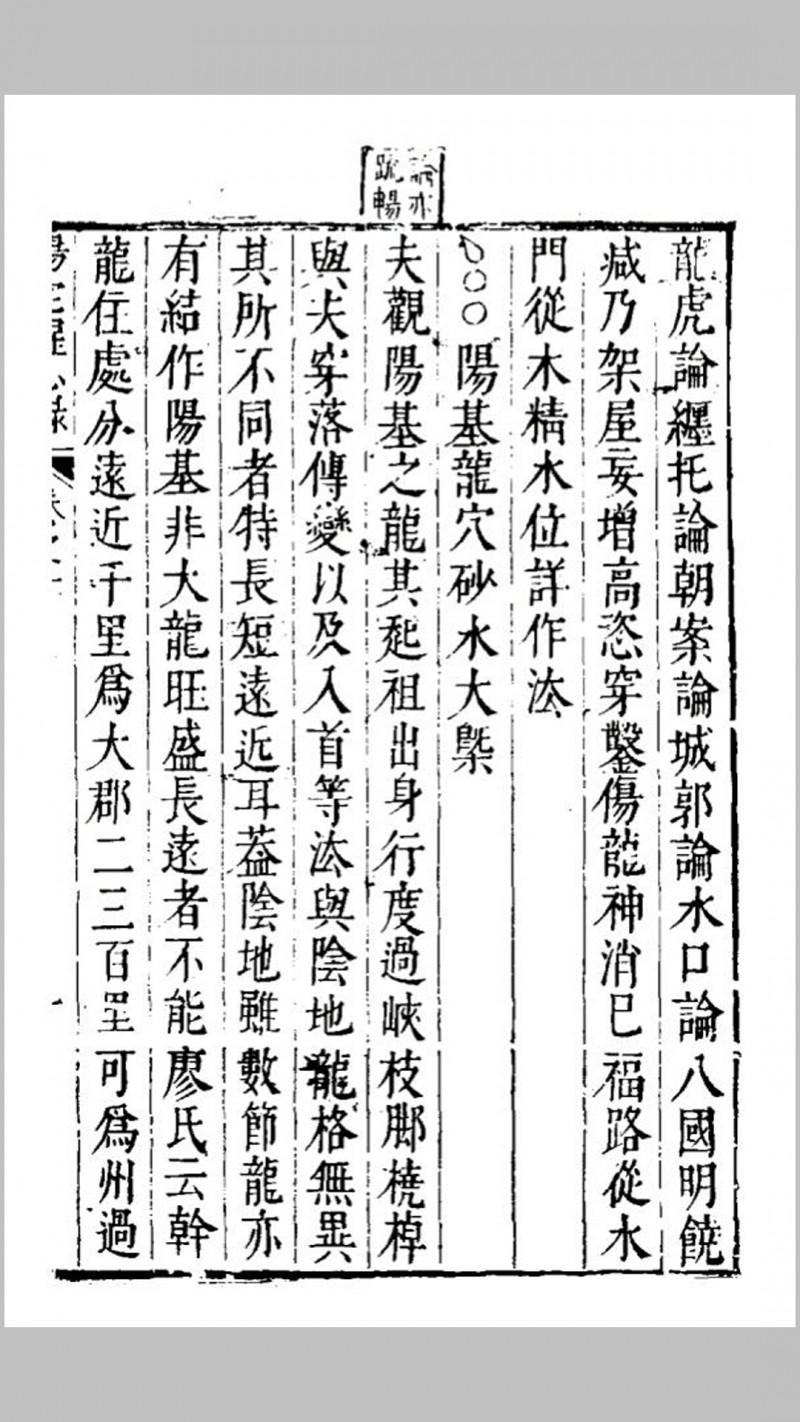 論亦
䟽暢
龍虎論纏托論朝案論城郭論水口論八國明饒
减乃架屋妄增高恣穿鑿傷龍神消巳福路從水
門從木精水位詳作法
○○○陽基龍穴砂水大槩
夫觀陽基之龍其起祖出身行度過峽枝脚橈棹
與夫穿落傳變以及入首等法與陰地龍格無異
其所不同者特長短遠近耳葢陰地雖數節龍亦
有結作陽基非大龍旺盛長遠者不能廖氏云幹
龍住處分遠近千里爲大郡二三百里可爲州過